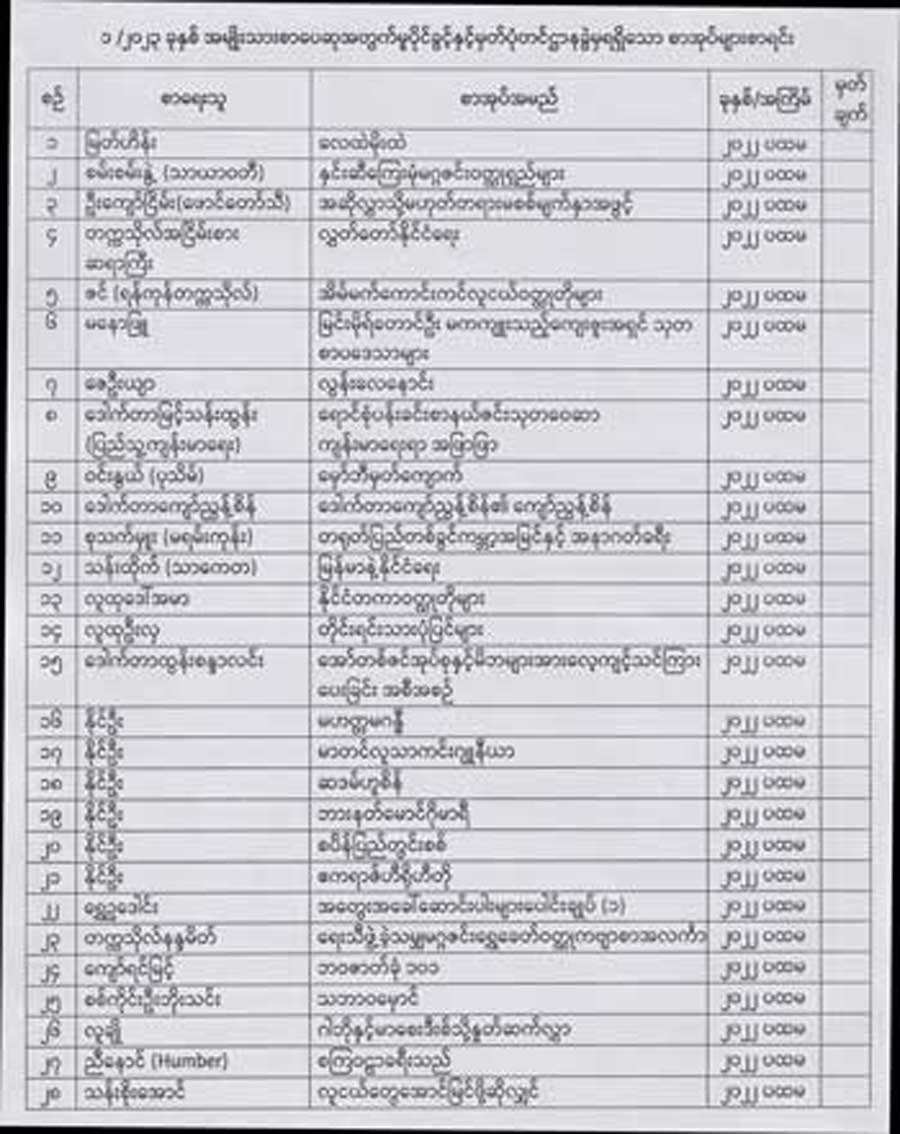 ၁ /၂၀၂၃ ခုနှစ် အမျိုးသားစာပေဆုအတွက်မူပိုင်ခွင့်နှင့်မှတ်ပုံတင်ဌာနခွဲမှရရှိသော စာအုပ်များစာရင်း
စဉ် စာရေးသူ စာအုပ်အမည် ခုနှစ်/အကြိမ် မှတ်
ချက်
၁ မြတ်ဟိန်း လေထဲမိုးထဲ ၂၀၂၂ ပထမ
၂ စမ်းစမ်းနွဲ့ (သာယာဝတီ) နှင်းဆီကြေးမုံမဂ္ဂဇင်းဝတ္ထုရှည်များ ၂၀၂၂ ပထမ
၃ ဦးကျော်ငြိမ်း(ဖောင်တော်သီ) အဆိုလွှာသို့မဟုတ်တရားမစစ်မျက်နှာအဖွင့် ၂၀၂၂ ပထမ
၄ တက္ကသိုလ်အငြိမ်းစား လွှတ်တော်နိုင်ငံရေး ၂၀၂၂ ပထမ
ဆရာကြီး
၅ ဇင် (ရန်ကုန်တက္ကသိုလ်) အိမ်မက်ကောင်းကင်လူငယ်ဝတ္ထုတိုများ ၂၀၂၂ ပထမ
၆ မနောဖြူ မြင်းမိုရ်တောင်ဦး မကကျူးသည့်ကျေးဇူးအရှင် သုတ ၂၀၂၂ ပထမ
စာပဒေသာများ
၇ ဇေဦးယျာ လွန်းလေနောင်း ၂၀၂၂ ပထမ
၈ ဒေါက်တာမြင့်သန်းထွန်း ရောင်စုံပန်းခင်းစာနယ်ဇင်းသုတဝေဆာ ၂၀၂၂ ပထမ
(ပြည်သူ့ကျန်းမာရေး) ကျန်းမာရေးရာ အဖြာဖြာ
၉ ဝင်းနွယ် (ပုသိမ်) မှော်ဘီမှတ်ကျောက် ၂၀၂၂ ပထမ
၁၀ ဒေါက်တာကျော်ညွန့်စိန် ဒေါက်တာကျော်ညွန့်စိန်၏ ကျော်ညွန့်စိန် ၂၀၂၂ ပထမ
၁၁ စုသက်မှူး (မရမ်းကုန်း) တရုတ်ပြည်တစ်ခွင်ကမ္ဘာ့အမြင်နှင့် အနာဂတ်ခရီး ၂၀၂၂ ပထမ
၁၂ သန်းထိုက် (သာကေတ) မြန်မာနဲ့နိုင်ငံရေး ၂၀၂၂ ပထမ
၁၃ လူထုဒေါ်အမာ နိုင်ငံတကာဝတ္ထုတိုများ ၂၀၂၂ ပထမ
၁၄ လူထုဦးလှ တိုင်းရင်းသားပုံပြင်များ ၂၀၂၂ ပထမ
၁၅ ဒေါက်တာထွန်းစန္ဒာလင်း အော်တစ်ဇင်အုပ်စုနှင့်မိဘများအားလေ့ကျင့်သင်ကြား ၂၀၂၂ ပထမ
ပေးခြင်း အစီအစဉ်
၁၆ နိုင်ဦး မဟတ္တမဂန္ဓီ ၂၀၂၂ ပထမ
၁၇ နိုင်ဦး မာတင်လူသာကင်းဂျူနီယာ ၂၀၂၂ ပထမ
၁၈ နိုင်ဦး ဆဒမ်ဟူစိန် ၂၀၂၂ ပထမ
၁၉ နိုင်ဦး ဘားနတ်မောင်ဂိုမာရီ ၂၀၂၂ ပထမ
၂၀ နိုင်ဦး စပိန်ပြည်တွင်းစစ် ၂၀၂၂ ပထမ
၂၁ နိုင်ဦး ဧကရာဇ်ဟီရိုဟီတို ၂၀၂၂ ပထမ
၂၂ ရွှေဥဒေါင်း အတွေးအခေါ်ဆောင်းပါးများပေါင်းချုပ် (၁) ၂၀၂၂ ပထမ
၂၃ တက္ကသိုလ်နန္ဒမိတ် ရေးသီဖွဲ့ခဲ့သမျှမဂ္ဂဇင်းရွှေခေတ်ဝတ္ထုကဗျာစာအလင်္ကာ ၂၀၂၂ ပထမ
၂၄ ကျော်ရင်မြင့် ဘဝဇာတ်ခုံ ၁၀၁ ၂၀၂၂ ပထမ
၂၅ စစ်ကိုင်းဦးဘိုးသင်း သဘာဝမှောင် ၂၀၂၂ ပထမ
၂၆ လူချို ဂါဘိုနှင့်မာစေးဒီးစ်သို့နှုတ်ဆက်လွှာ ၂၀၂၂ ပထမ
၂၇ ညီနောင် (Humber) စကြဝဠာခရီးသည် ၂၀၂၂ ပထမ
၂၈ သန်းစိုးအောင် လူငယ်တွေအောင်မြင်ဖို့ဆိုလျှင် ၂၀၂၂ ပထမ